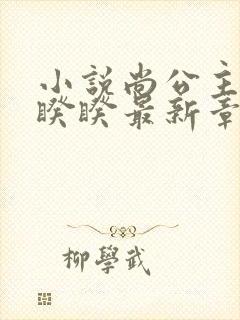 小說尚公主
睽睽最新章
柳學武